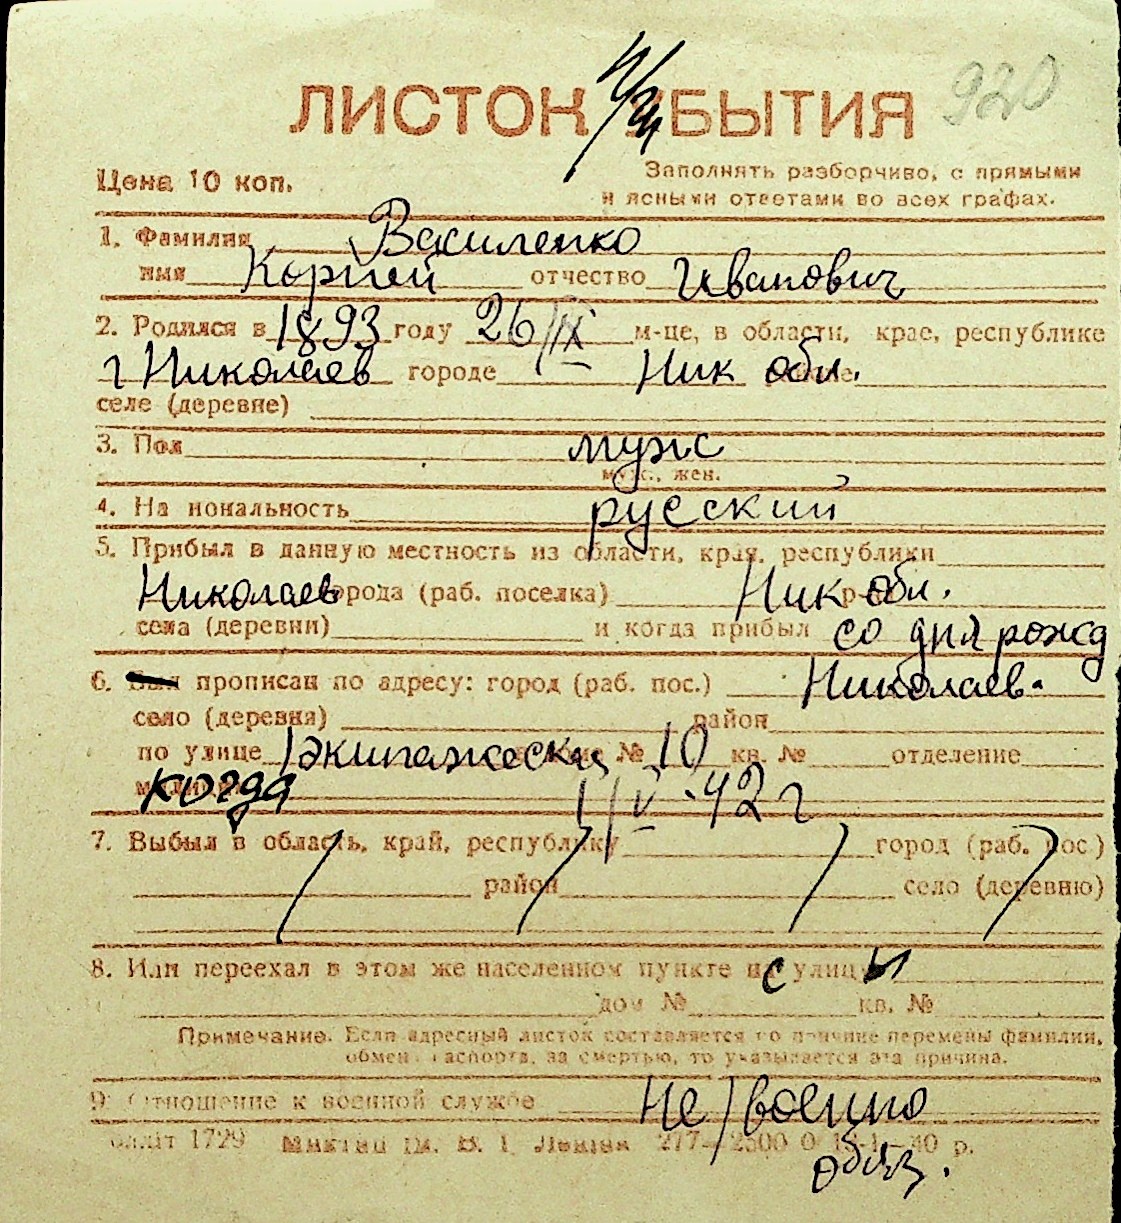 920
ЛИСТОК ПРИБЫТИЯ
Цена 10 коп.
Заполнять разборчиво, с прямыми
и ясными ответами во всех графах.
1. Фамилия Василенко
имя Корней отчество Иванович
2. Родился в 1893 году 26/IX м-це, в области, крае, республике
г Николаев городе Ник обл.
селе (деревне)
3. Пол муж
муж., жен.
4. Национальность русский
5. Прибыл в данную местность из области, края, республики
Николаев города (раб. поселка) Ник обл.
села (деревни) и когда прибыл со дня рожд
6. Был прописан по адресу: город (раб. пос.) Николаев.
село (деревня) район
по улице 1 экипажеск № 10 кв. № отделение
милиции когда 1/V-42 г
7. Выбыл в область, край, республику город (раб. пос.)
район село (деревню)
8. Или переехал в этом же населенном пункте с улицы
дом № кв. №
Примечание. Если адресный листок составляется по причине перемены фамилии,
обмена паспорта, за смертью, то указывается эта причина.
9. Отношение к военной службе Не/военно
обяз.
1729 им. В. І. Леніна 277—2500 0 40 р.